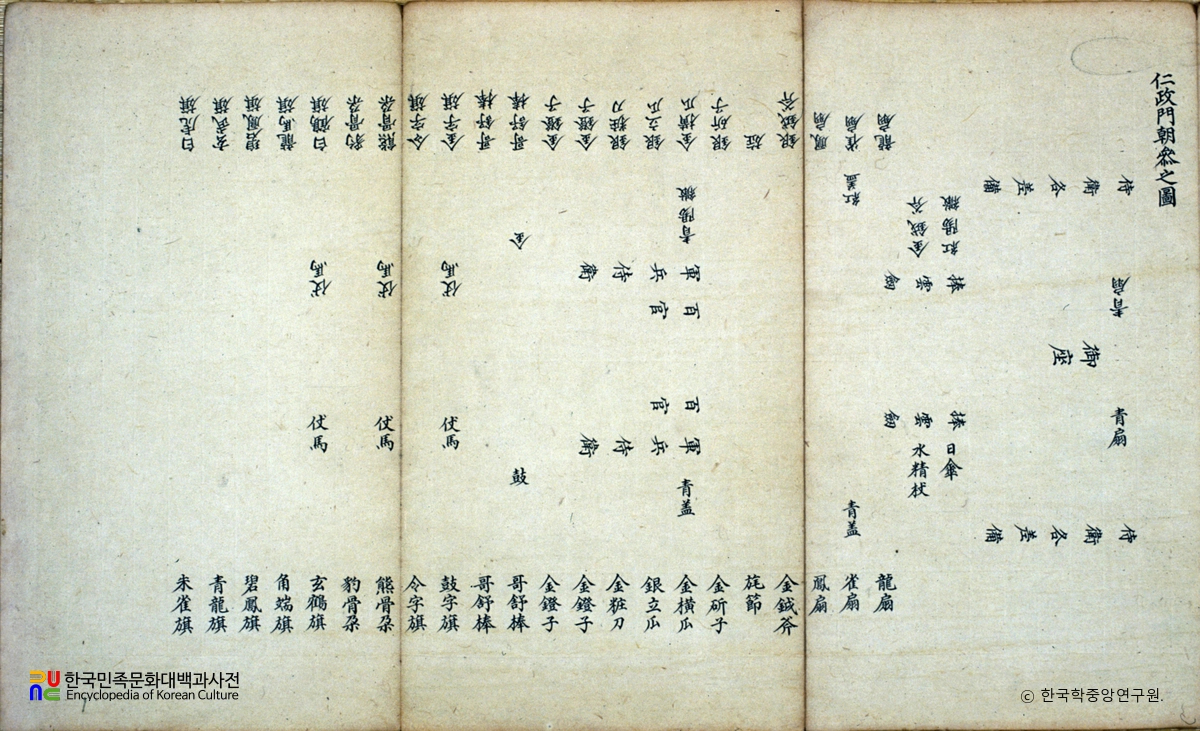 仁政門朝參之圖
侍衛各差備
青扇
御座
青扇
侍衛各差備
捧雲劒
捧雲劒
日傘
水精杖
金鉞斧
青盖
紅盖
龍扇
雀扇
鳳扇
龍扇
雀扇
鳳扇
銀鉞斧
旌
銀斫子
金橫瓜
銀立瓜
銀粧刀
金鐙子
金鐙子
哥舒棒
哥舒棒
金字旗
令字旗
熊骨朶
豹骨朶
白鶴旗
龍馬旗
碧鳳旗
玄武旗
白虎旗
軍兵侍衛
百官
百官
軍兵侍衛
青盖
金
鼓
仗馬
仗馬
仗馬
仗馬
仗馬
仗馬
金鉞斧
旄節
金斫子
金橫瓜
銀立瓜
金粧刀
金鐙子
金鐙子
哥舒棒
哥舒棒
鼓字旗
令字旗
熊骨朶
豹骨朶
玄鶴旗
角端旗
碧鳳旗
青龍旗
朱雀旗
한국민족문화대백과사전
Encyclopedia of Korean Culture
ⓒ 한국학중앙연구원.